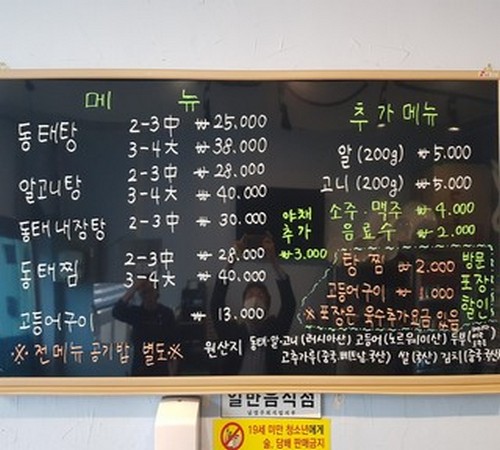 메 뉴
동태탕 2-3中 ₩ 25.000
3-4大 ₩ 38.000
알고니탕 2-3中 ₩ 28.000
3-4大 ₩ 40.000
동태내장탕 2-3中 ₩ 30.000
동태찜 2-3中 ₩ 28.000
3-4大 ₩ 40.000
고등어구이 ₩ 13.000
※ 전메뉴 공기밥 별도※
추가메뉴
알 (200g) ₩ 5.000
고니 (200g) ₩ 5.000
소주·맥주 ₩ 4.000
음료수 ₩ 2.000
야채
추가
₩3.000
탕·찜 ₩ 2.000
고등어구이 ₩ 1.000
※포장은 육수추가요금 있음
방문
포장
할인
원산지 동태·알·고니 (러시아산) 고등어 (노르웨이산) 두부
고추가루 (중국,베트남,국산) 쌀 (국산) 김치 (중국
일반음식점
19세 미만 청소년에게
술, 담배 판매금지